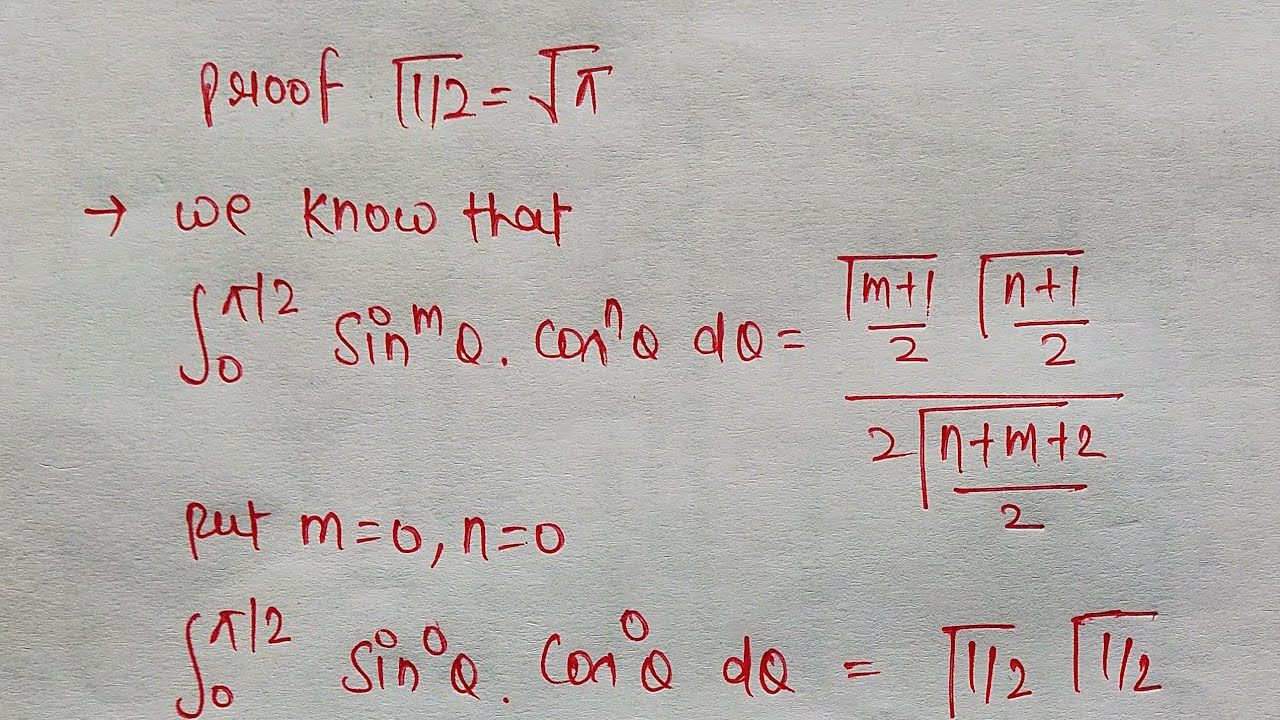 proof Γ1/2 = √π
→ we know that
∫₀^π/2 sin^m θ . cos^n θ dθ = Γ(m+1)/2 Γ(n+1)/2 / 2Γ(n+m+2)/2
put m=0, n=0
∫₀^π/2 sin^0 θ . cos^0 θ dθ = Γ1/2 Γ1/2